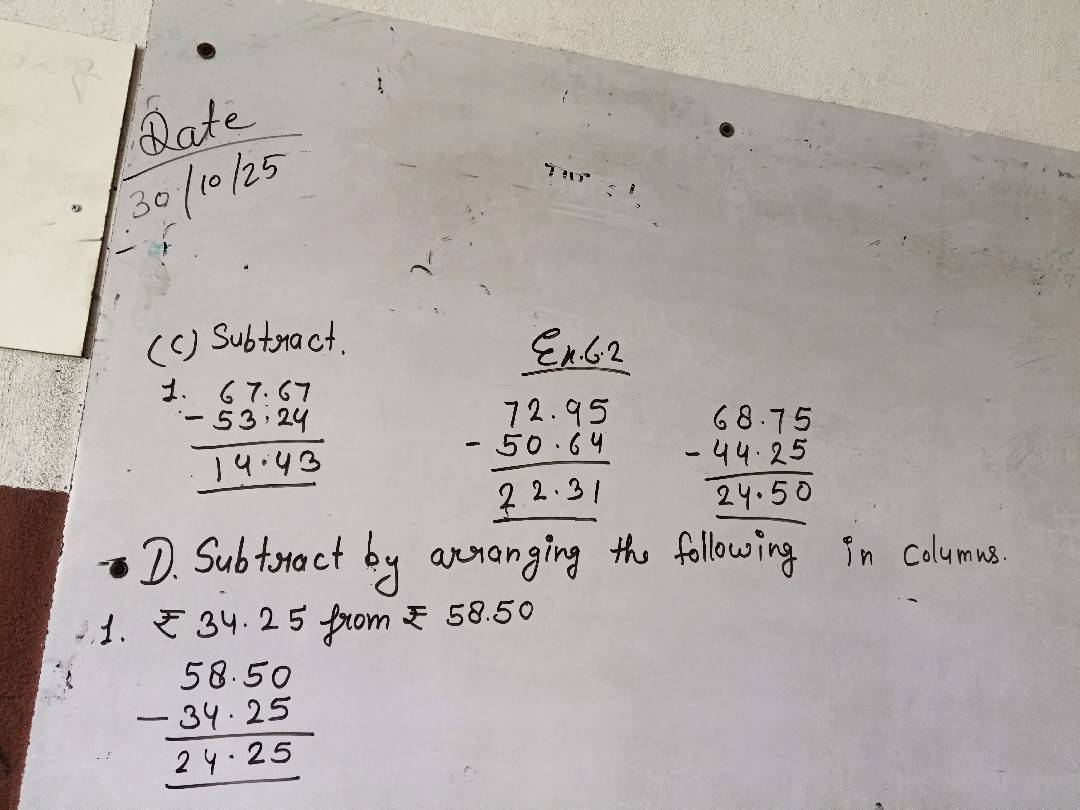 Date
30/10/25
(C) Subtract.
Ex.6.2
1. 67.67
- 53.24
14.43
72.95
- 50.64
22.31
68.75
- 44.25
24.50
D. Subtract by arranging the following in columns.
1. ₹ 34.25 from ₹ 58.50
58.50
- 34.25
24.25